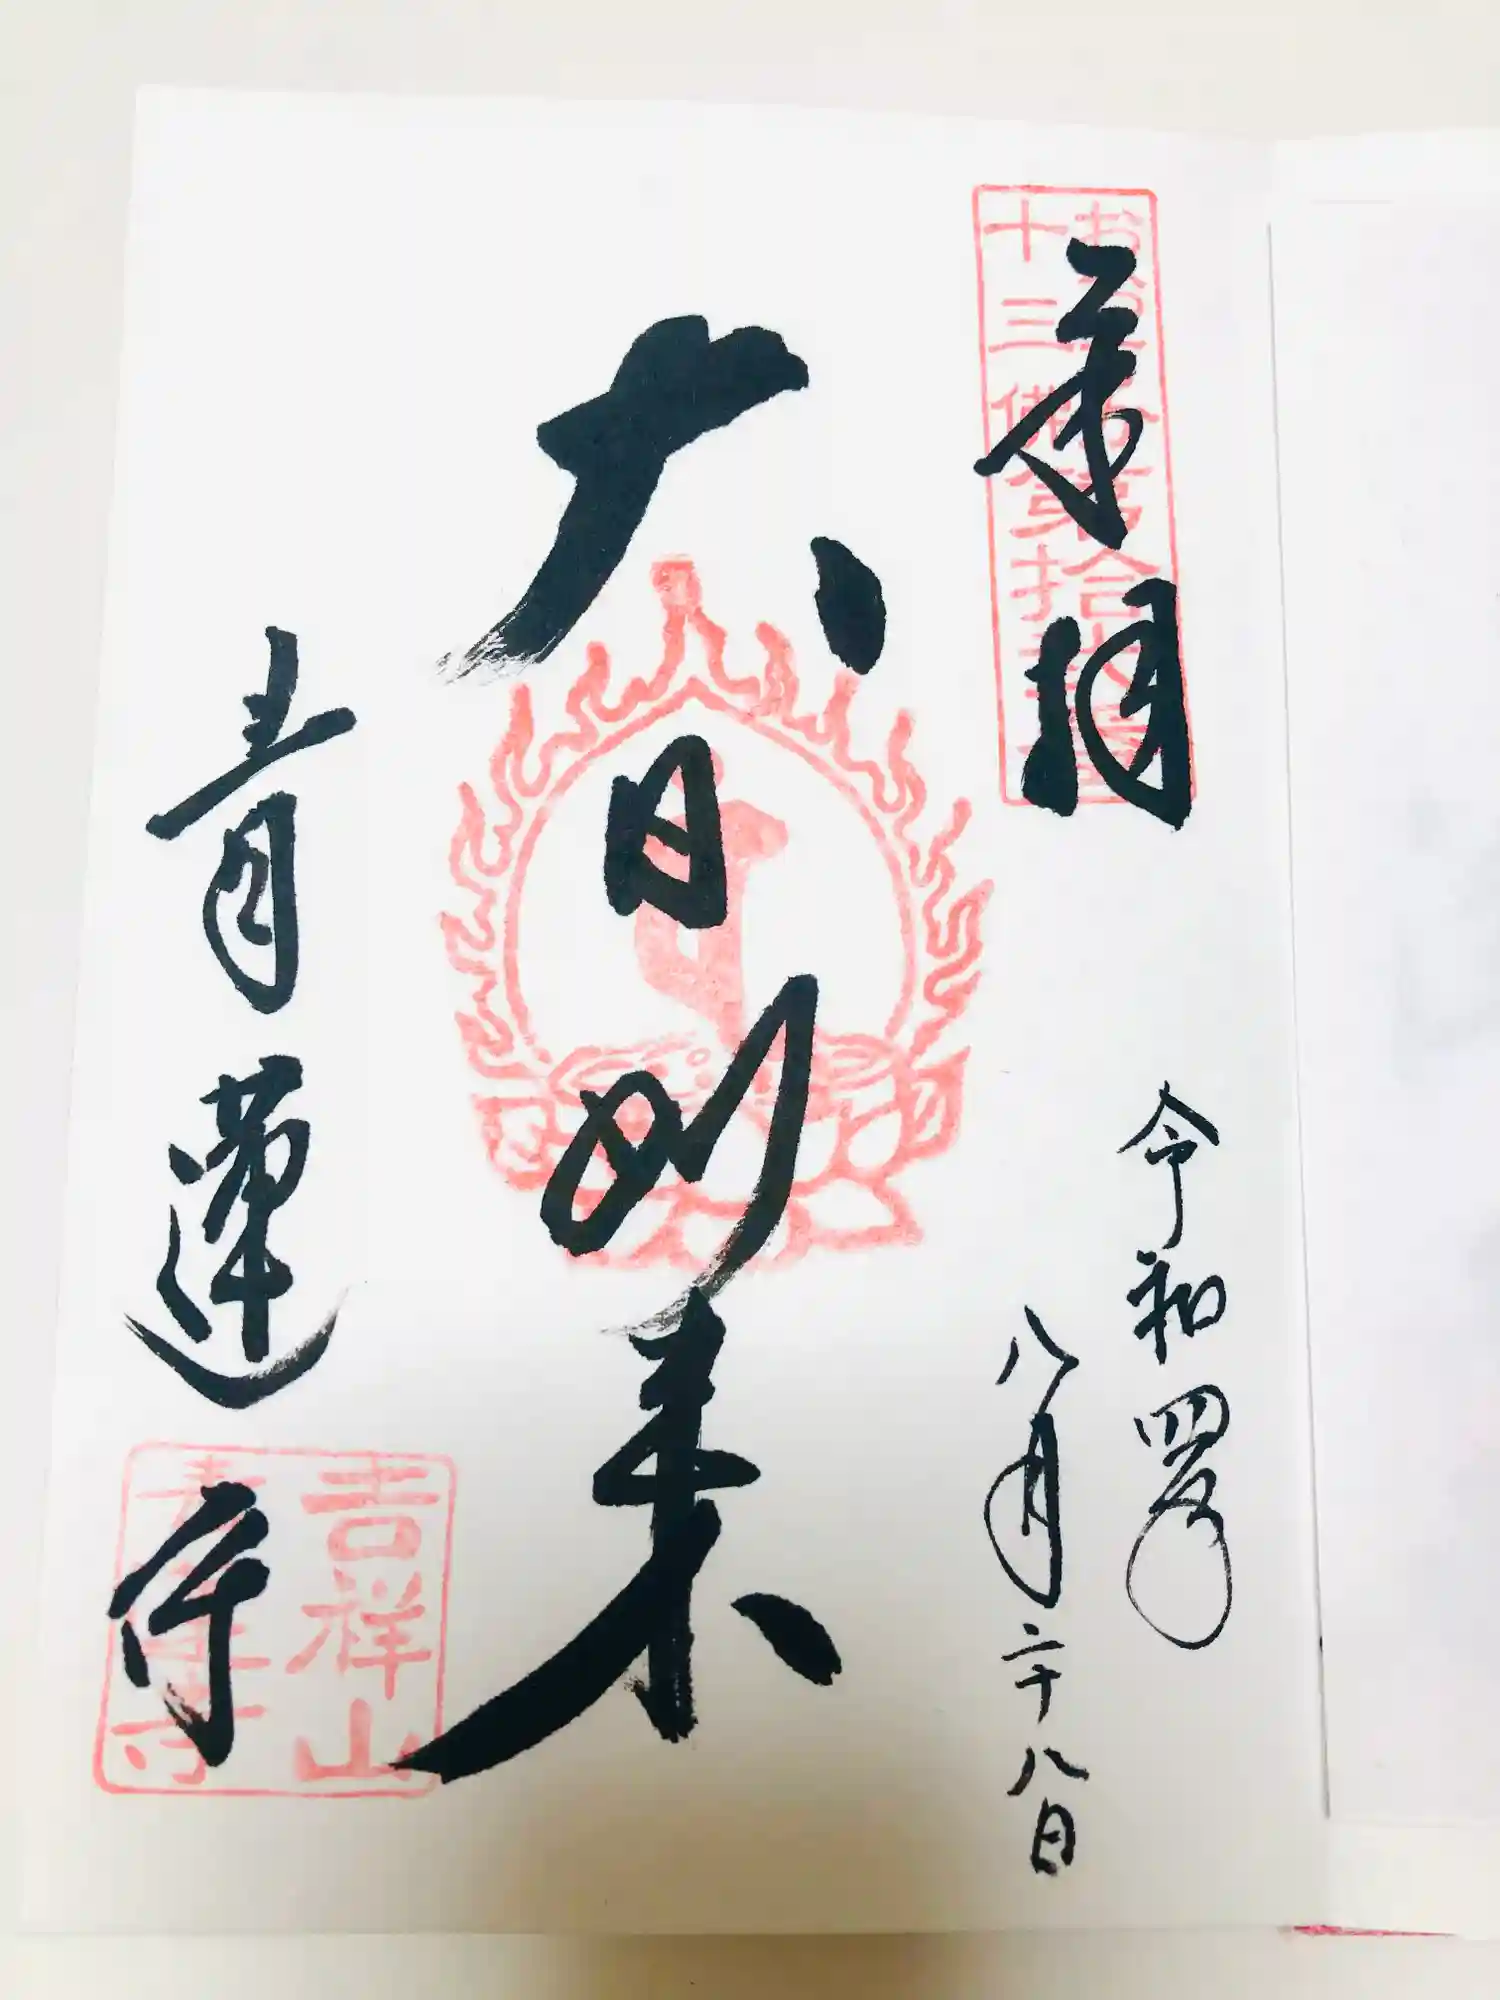 奉拝
十三佛第拾弐番
令和四年
八月二十八日
大日如来
青蓮寺
吉祥山
青蓮寺